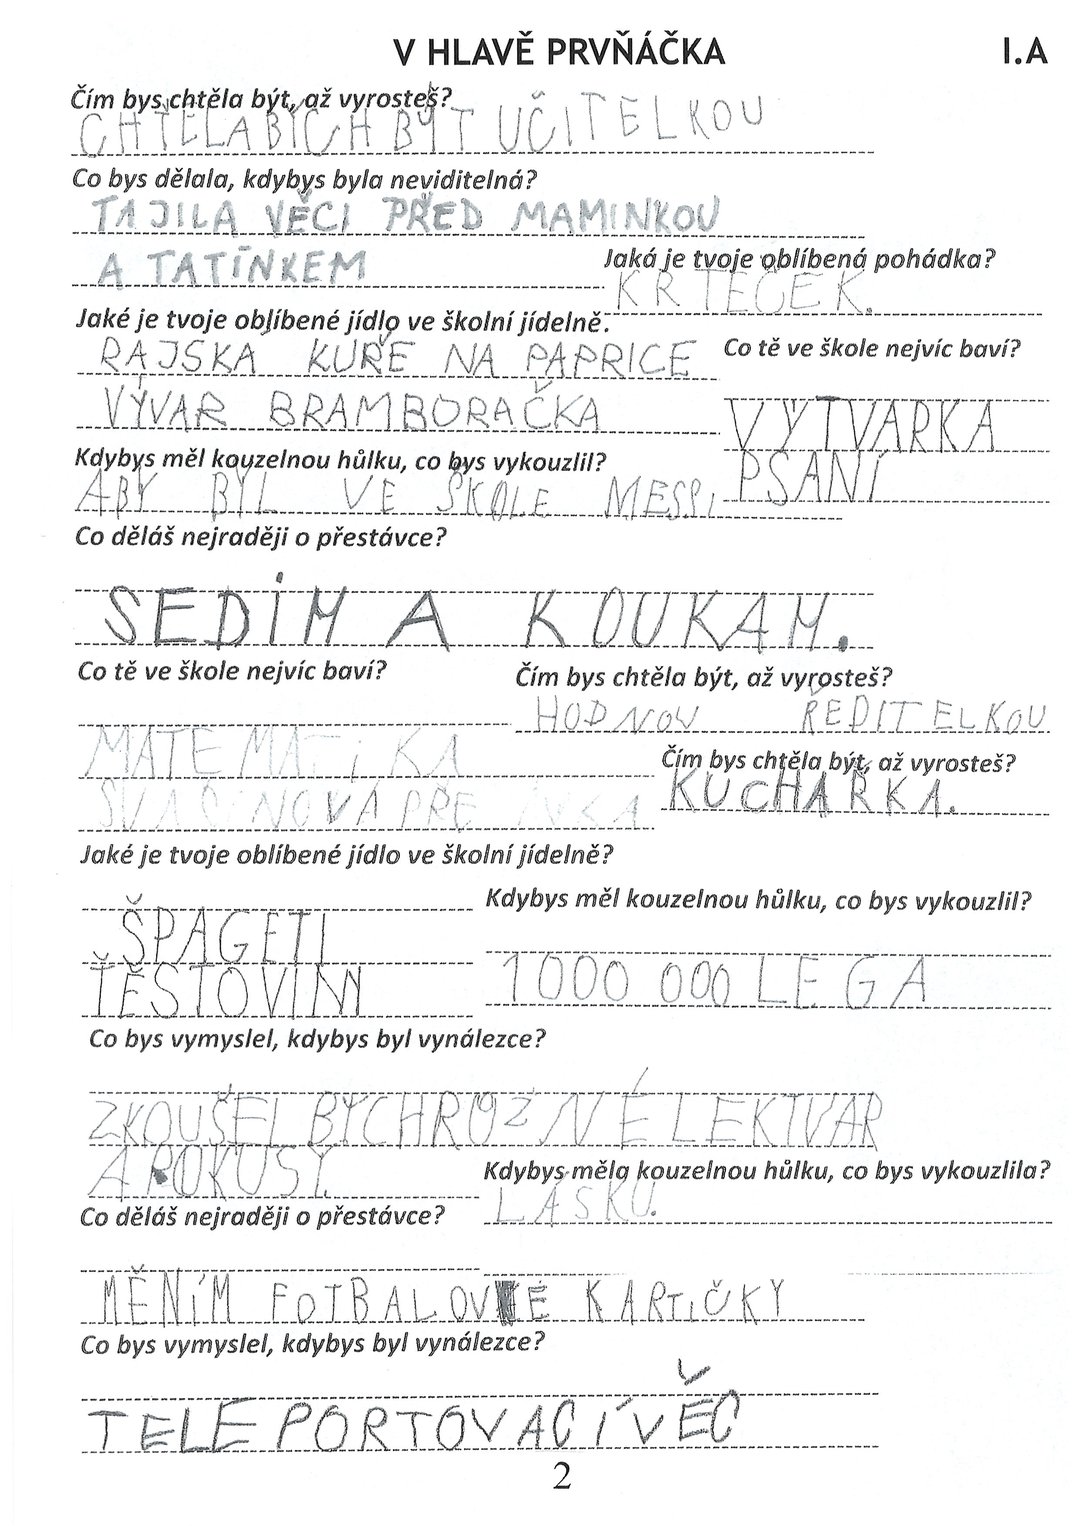 V HLAVĚ PRVŇÁČKA I.A
Čím bys chtěla být, až vyrosteš?
CHTĚLA BICH BÝT UČITELKOU
Co bys dělala, kdybys byla neviditelná?
TAJILA VĚCI PŘED MAMINKOU
A TATÍNKEM
Jaká je tvoje oblíbená pohádka?
KRTEČEK.
Jaké je tvoje oblíbené jídlo ve školní jídelně.
RAJSKÁ KUŘE NA PAPRICE
VÝVAR BRAMBORAČKA
Co tě ve škole nejvíc baví?
VÝTVARKA
PSANÍ
Kdybys měl kouzelnou hůlku, co bys vykouzlil?
ABY BYL VE ŠKOLE MESSI
Co děláš nejraději o přestávce?
SEDÍM A KOUKAM.
Co tě ve škole nejvíc baví?
MATEMATIKA
Čím bys chtěla být, až vyrosteš?
HODNOU ŘEDITELKOU
Čím bys chtěla být, až vyrosteš?
KUCHAŘKA.
Jaké je tvoje oblíbené jídlo ve školní jídelně?
ŠPAGETI
TĚSTOVINI
Kdybys měl kouzelnou hůlku, co bys vykouzlil?
1000 000 LEGA
Co bys vymyslel, kdybys byl vynálezce?
ZKOUŠEL BYCH RŮZNÉ LEKTVAR
A POKUSY.
Kdybys měla kouzelnou hůlku, co bys vykouzlila?
LÁSKU.
Co děláš nejraději o přestávce?
MĚNÍM FOTBALOVÉ KARTIČKY
Co bys vymyslel, kdybys byl vynálezce?
TELEPORTOVACÍ VĚC
2